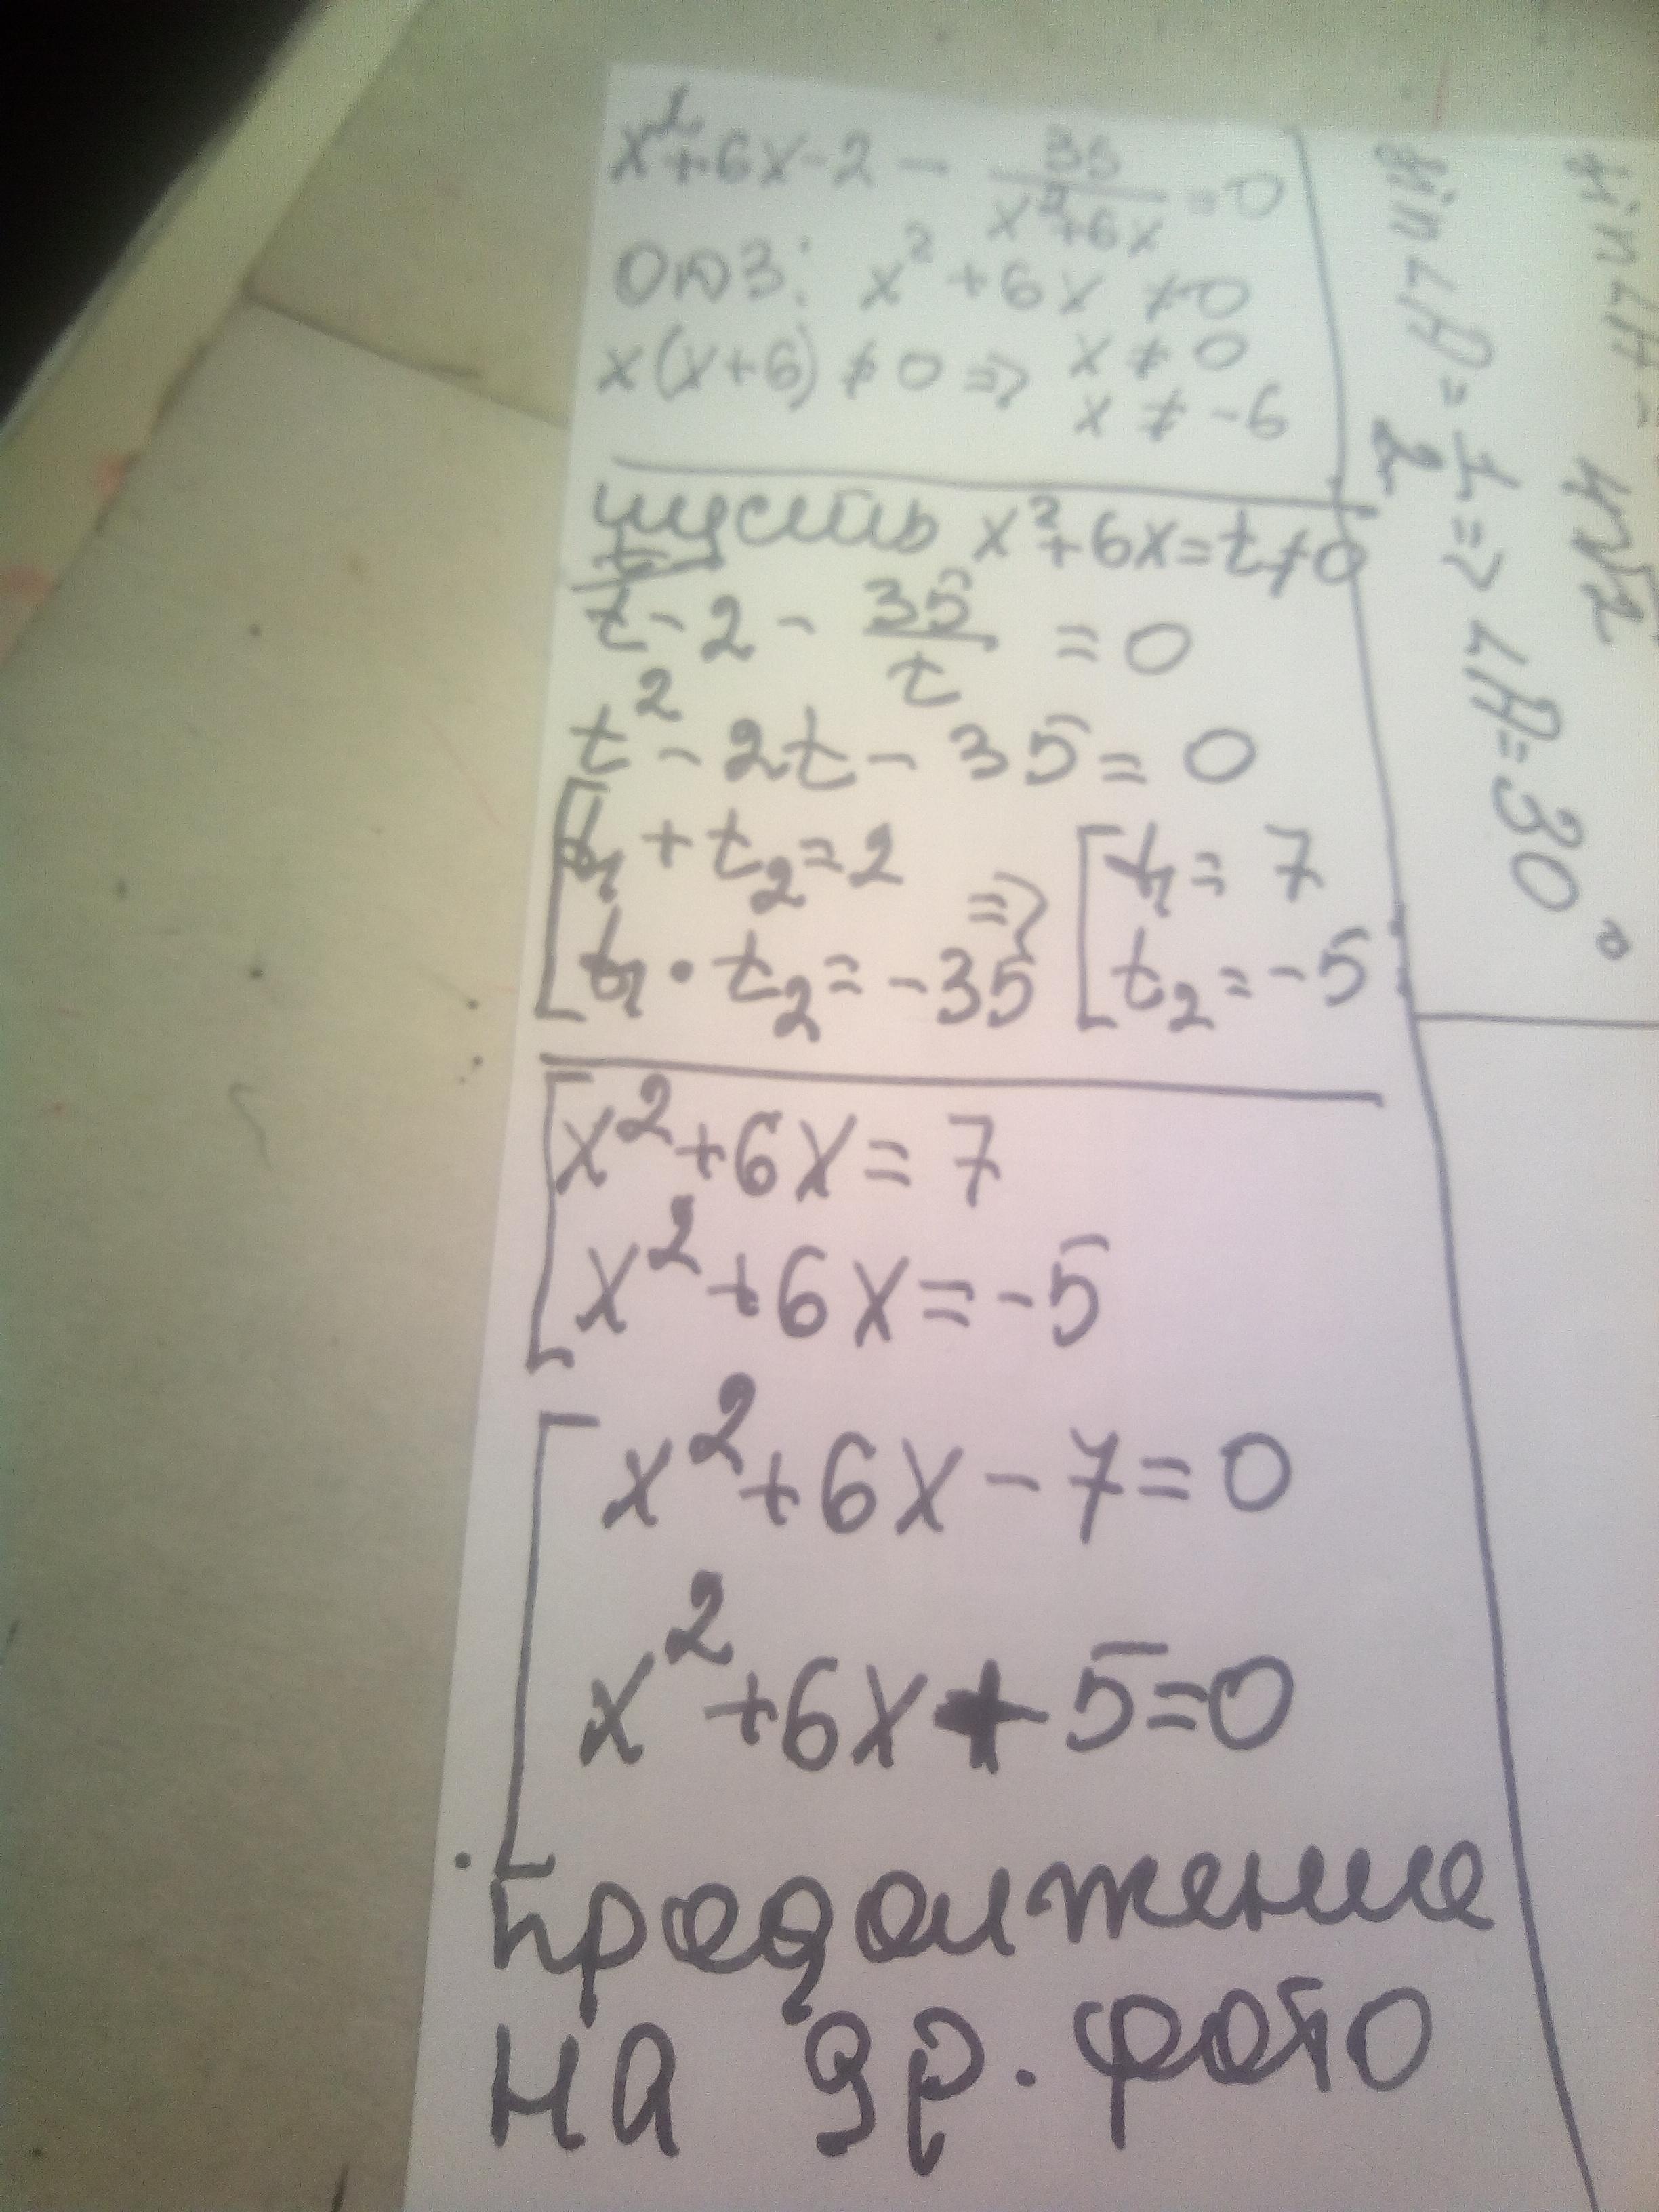 x²+6x-2 - 35/(x²+6x) =0
ОДЗ: x²+6x ≠0
x(x+6) ≠ 0 => x ≠ 0
x ≠ -6
пусть x²+6x=t≠0
t-2- 35/t =0
t²-2t-35=0
[t₁+t₂=2 => [t₁=7
[t₁·t₂=-35 [t₂=-5
[x²+6x=7
[x²+6x=-5
[x²+6x-7=0
[x²+6x+5=0
продолжение
на др. фото
sin∠A=1/2=>∠A=30°
sin∠A=